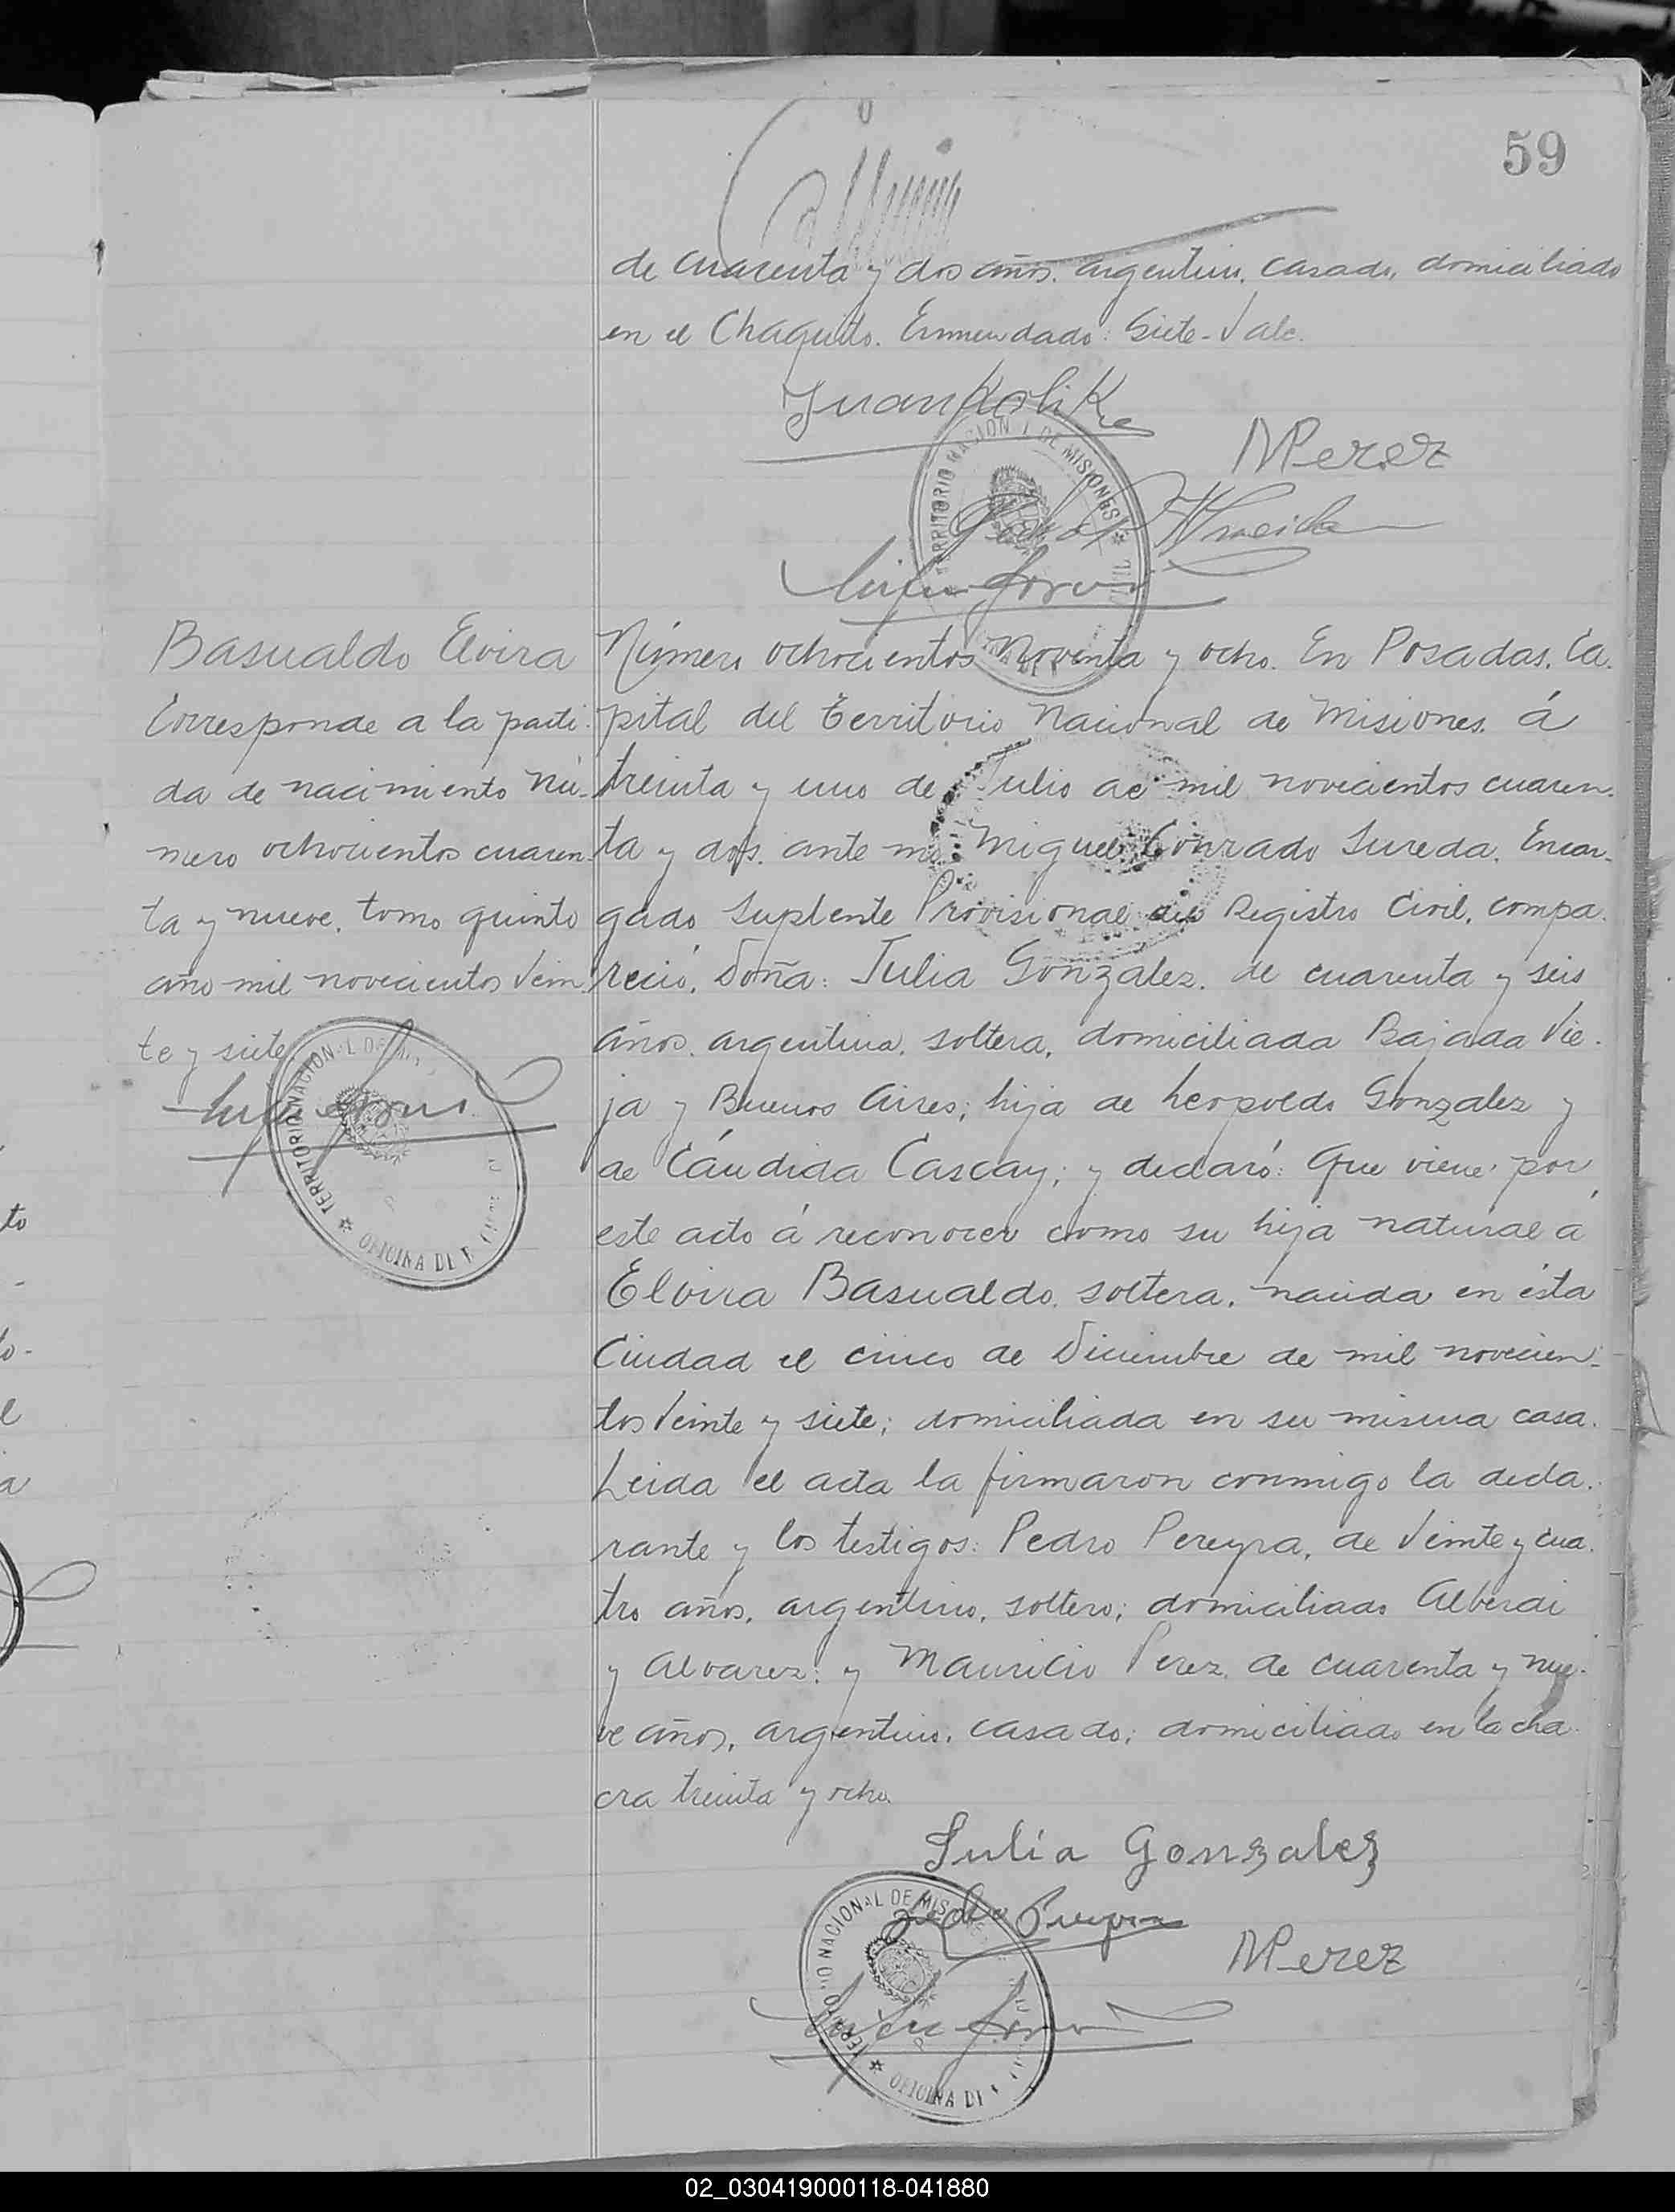 59
de cuarenta y dos años. argentino, casado, domiciliado
en el Chaquito. Enmendado: Siete-Vale.
M Perez
TERRITORIO NACIONAL DE MISIONES
Basualdo Elvira
Corresponde a la parti-
da de nacimiento nú-
mero ochocientos cuaren-
ta y nueve, tomo quinto
año mil novecientos Vein-
te y siete
TERRITORIO NACIONAL DE
OFICINA DE
Número ochocientos noventa y ocho. En Posadas, Ca-
pital del Territorio Nacional de Misiones, á
treinta y uno de Julio de mil novecientos cuaren-
ta y dos, ante mi: Miguel Conrado Sureda, Encar-
gado Suplente Provisional del Registro Civil, compa-
reció, Doña: Julia Gonzalez, de cuarenta y seis
años, argentina, soltera, domiciliada Bajada Vie-
ja y Buenos Aires; hija de Leopoldo Gonzalez y
de Cándida Cascay; y declaró: Que viene por
este acto á reconocer como su hija natural á
Elvira Basualdo, soltera, nacida en ésta
Ciudad el cinco de Diciembre de mil novecien-
tos Veinte y siete; domiciliada en su misma casa.
Leida el acta la firmaron conmigo la decla-
rante y los testigos: Pedro Pereyra, de Veinte y cua-
tro años, argentino, soltero; domiciliado Alberdi
y Alvarez; y Mauricio Perez, de cuarenta y nue-
ve años, argentino, casado; domiciliado en la cha-
cra treinta y ocho.
Julia Gonzalez
Pedro Pereyra
M Perez
NACIONAL DE MIS
OFICINA DE
02_030419000118-041880